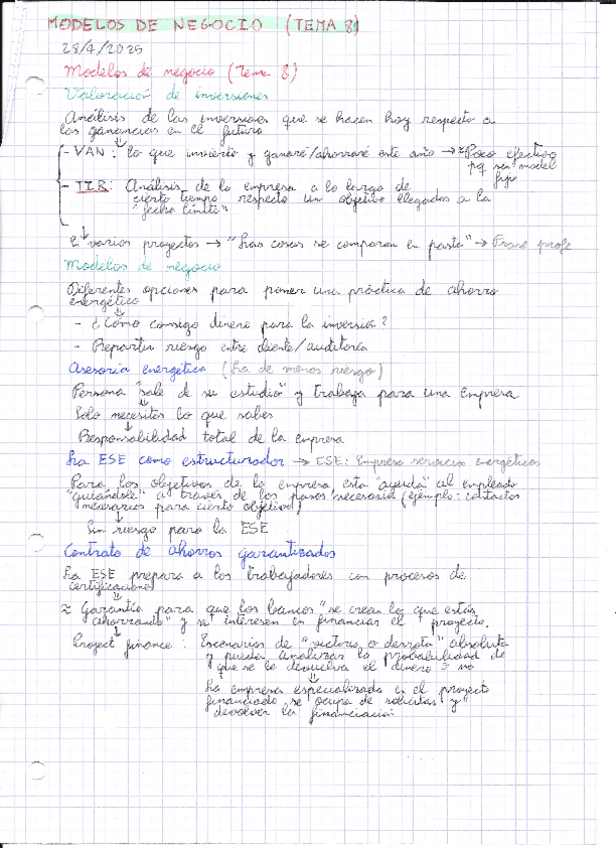 MODELOS DE NEGOCIO (TEMA 8)
28/4/2025
Modelos de negocio (Tema 8)
Valoración de inversiones
Análisis de las inversiones que se hacen hoy respecto a
las ganancias en el futuro
- VAN: lo que invierto y ganaré/ahorraré este año → Poco efectivo
pq ser model
fijo
- TIR: Análisis de la empresa a lo largo de
cierto tiempo respecto un objetivo elegados a la
"fecha límite"
varios proyectos → "Las cosas se comparan en pasta" → Frase profe
Modelos de negocio
Diferentes opciones para poner una práctica de ahorro
energético
- ¿Cómo consigo dinero para la inversión?
- Repartir riesgo entre cliente/auditoría
Asesoría energética (La de menos riesgo)
Persona "sale de su estudio" y trabaja para una empresa
Solo necesitas lo que sabes
Responsabilidad total de la empresa
La ESE como estructurador → ESE: Empresa servicios energéticos
Para los objetivos de la empresa esta "ayuda" al empleado
"guiándole" a través de los pasos necesarios (ejemplo: contactos
necesarios para cierto objetivo)
Sin riesgo para la ESE
Contrato de ahorros garantizados
La ESE prepara a los trabajadores con procesos de
certificaciones
≈ Garantía para que los bancos "se crean lo que estás
ahorrando" y se interesen en financiar el proyecto.
Project finance: Escenarios de "victoria o derrota" absoluta
y pueda analizar la probabilidad de
que se le devuelva el dinero o no
La empresa especializada en el proyecto
financiado se ocupa de solicitar y
devolver la financiación